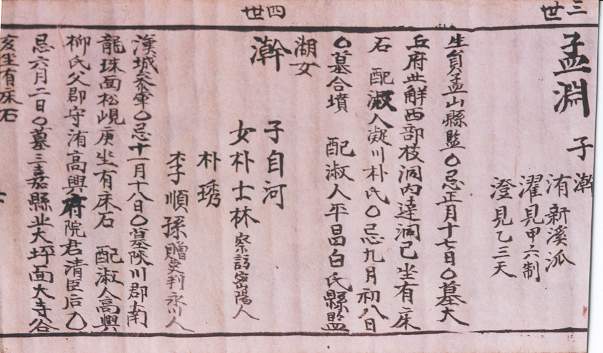 三世
孟淵
子澣
洧新溪派
濯見甲六制
澄見乙三夭
生員孟山縣監○忌正月十七日○墓大
丘府北解西部枝洞內達洞己坐有床
石 配淑人凝川朴氏○忌九月初八日
○墓合墳 配淑人平昌白氏縣監
湖女
四世
澣
子自河
女朴士林察訪密陽人
朴琇
李順孫贈吏判永川人
漢城參軍○忌十一月十八日○墓陜川郡上南
龍珠面松峴庚坐有床石 配淑人高興
柳氏父郡守洧高興府院君淸臣后○
忌六月二日○墓三嘉縣北大坪面大寺谷
亥坐有床石